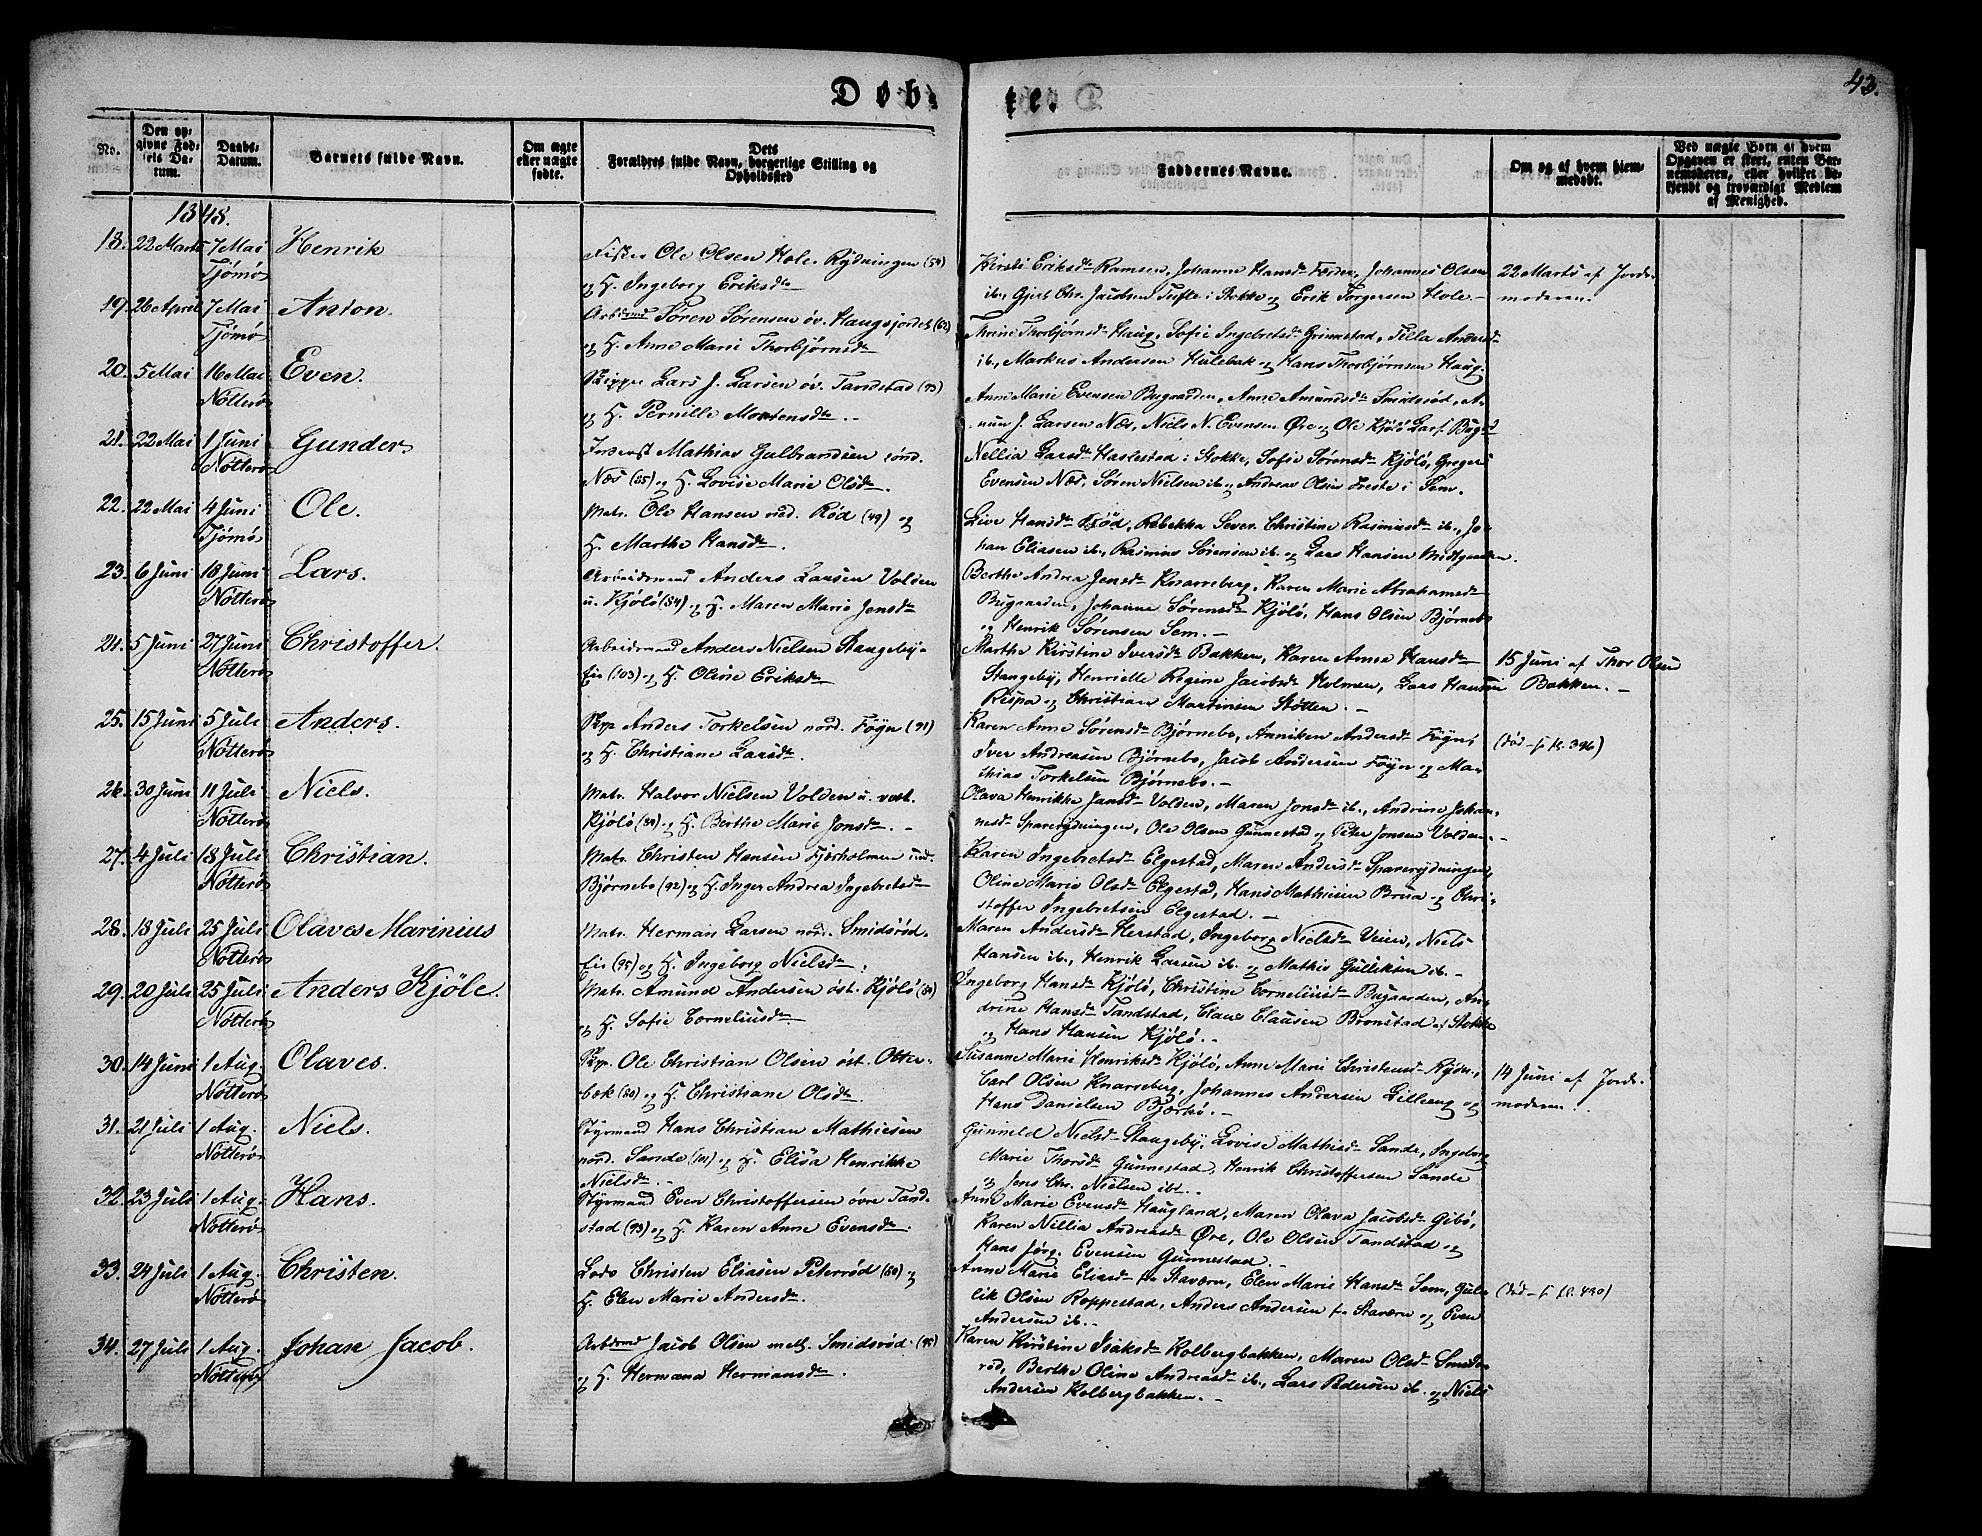 Døb-
te.
43.
No.
Den op-
givne Fød-
sels Da-
tum.
Daabs-
Datum.
Barnets fulde Navn.
Om ægte
eller uægte
fødte.
Dets
Forældres fulde Navn, borgerlige Stilling og
Opholdssted
Faddernes Navne.
Om og af hvem hjem-
medøbt.
Ved uægte Børn af hvem
Opgaven er skeet, enten Bar-
nemoderen, eller hvilket be-
kjendt og troværdigt Medlem
af Menighed.
1848.
18. 22 Marts 7 Mai Henrik
Tjømø
Fisker Ole Olsen Hole-Rydningen (54)
og H. Ingeborg Eriksdr
Kirsti Eriksdr Ramsen, Johanne Hansdr Færder, Johannes Olsen
ib., Gjert Chr. Jacobsen Tufte i Stokke og Erik Torgersen Hole.-
22 Marts af Jorde-
moderen.
19. 26 April 7 Mai Anton.
Tjømø
Arbdsmd Søren Sørensen øv. Haugsjordet (62)
og H. Anne Marie Thorbjørnsdr
Thrine Thorbjørnsdr Haug, Sofie Ingebretsdr Grimestad, Tilla Andersdr
ib., Markus Andersen Hulebak og Hans Thorbjørnsen Haug.
20. 5 Mai 16 Mai Even.
Nötterö
Skipper Lars J. Larsen öv. Tandstad (93)
og H. Pernille Mortensdr.-
Anne Marie Evensen Bugaarden, Anne Amundsdr Smidsröd, A-
mun J. Larsen Næs, Niels N. Evensen Öre og Ole Kjölö Lars. Bugd
21. 22 Mai 1 Juni Gunder
Nötterö
Inderst Mathias Gulbrandsen sönd.
Næs (85) og H. Lovise Marie Olsdr.
Nellia Larsdr Haslestad i Stokke, Sofie Sörensdr Kjölö, Gregers
Evensen Næs, Sören Nielsen ib. og Andreas Olsen Treste i Sem.
22. 22 Mai 4 Juni Ole.
Tjömö
Matr. Ole Hansen nød. Röd (49) og
H. Marthe Hansdr.
Live Hansdr Röd, Rebekka Sever. Christine Rasmusdr ib., Jo-
han Eliasen ib., Rasmus Sörensen ib. og Lars Hansen Midtgaarden.
23. 6 Juni 18 Juni Lars.
Nötterö
Arbeidsmand Anders Larsen Volden
u. Kjölö (84) og H. Maren Marie Jensdr
Berthe Andrea Jensdr Knarreberg, Karen Marie Abrahamsdr
Bugaarden, Johanne Sörensdr Kjölö, Hans Olsen Björnebo
og Henrik Sörensen Sem.-
24. 5 Juni 27 Juni Christoffer.
Nötterö
Arbeidsmand Anders Nielsen Stangeby-
Eie (103) og H. Oline Eriksdr
Marthe Kirstine Iversdr Bakken, Karen Anne Hansdr
Stangeby, Henrielle Regine Jacobsdr Holmen, Lars Hansen
Respa og Christian Martinsen Støtten.-
15 Juni af Thor Olsen
Bakken.-
25. 15 Juni 5 Juli Anders.
Nötterö
Skpr Anders Torkelsen nord. Föyn (91)
og H. Christiane Larsdr.
Karen Anne Sörensdr Björnebo, Anniken Andersdr Föyn,
Iver Andreasen Björnebo, Jacob Andersen Föyn og Ma-
thias Torkelsen Björnebo.-
(död - f. fl. 396)
26. 30 Juni 11 Juli Niels.
Nötterö
Matr. Halvor Nielsen Volden u. vest.
Kjölö (84) og H. Berthe Marie Jonsdr.-
Olava Henrikke Jansdr Volden, Maren Jonsdr ib., Andrine Johan-
nesdr Sparerydningen, Ole Olsen Gunnestad og Peter Jonsen Volden.-
27. 4 Juli 18 Juli Christian.
Nötterö
Matr. Christen Hansen Fjærholmen und.
Björnebo (92) og H. Inger Andrea Ingebretsdr
Karen Ingebretsdr Elgestad, Maren Andersdr Sparerydningen,
Oline Marie Olsdr Elgestad, Hans Mathisen Brua og Chri-
stoffer Ingebretsen Elgestad.-
28. 18 Juli 25 Juli Olaves Marinius
Nötterö
Matr. Herman Larsen nord. Smidsröd-
Eie (95) og H. Ingeborg Nielsdr.
Maren Andersdr Herstad, Ingeborg Nielsdr Veien, Niels
Hansen ib., Henrik Larsen ib. og Mathis Gulliksen ib.-
29. 20 Juli 25 Juli Anders Kjöle.
Nötterö
Matr. Amund Andersen öst. Kjölö (84)
og H. Sofie Corneliusdr.
Ingeborg Hansdr Kjölö, Christine Corneliusdr Bugaarden, An-
drine Hansdr Tandstad, Claus Clausen Brunstad af Stokke
og Hans Hansen Kjölö.-
30. 14 Juni 1 Aug. Olaves.
Nötterö
Skpr. Ole Christian Olsen öst. Otter-
bæk (80) og H. Christiane Olsdr.
Susanne Marie Henriksdr Kjölö, Anne Marie Christensdr Rydn.,
Carl Olsen Knarreberg, Johannes Andersen Lilleeng og
Hans Danielsen Bjerkö.-
14 Juni af Jorde-
moderen.
31. 21 Juli 1 Aug. Niels.
Nötterö
Styrmand Hans Christian Mathiesen
nord. Sande (101) og H. Elisa Henrikke
Nielsdr.-
Gunnild Nielsdr Stangeby, Lovise Mathisdr Sande, Ingeborg
Marie Thorsdr Gunnestad, Henrik Christoffersen Sande
og Jens Chr. Nielsen ibt.-
32. 23 Juli 1 Aug. Hans.
Nötterö
Styrmand Even Christoffersen övre Tand-
stad (93) og H. Karen Anne Evensdr.
Anne Marie Evensdr Haugland, Maren Olava Jacobsdr Gibö,
Karen Nellia Andreasdr Öre, Ole Olsen Tandstad og
Hans Jörg. Evensen Gunnestad.-
33. 24 Juli 1 Aug. Christen.
Nötterö
Lods Christen Eliasen Petersröd (80) og
H. Elen Marie Andersdr.
Anne Marie Eliasdr fra Staværn, Elen Marie Hansdr Sem, Gul-
lik Olsen Roppestad, Anders Andersen fra Staværn og Even
Andersen ib.-
(död - f. fl. 430)
34. 27 Juli 1 Aug. Johan Jacob.
Nötterö
Arbdsmd Jacob Olsen mell. Smidsröd (95)
og H. Hermana Hermansdr.
Karen Kirstine Isaksdr Kolbergbakken, Maren Olsdr Smids-
röd, Berthe Oline Andreasdr ib., Lars Pedersen ib. og Niels
Andersen Kolbergbakken.-